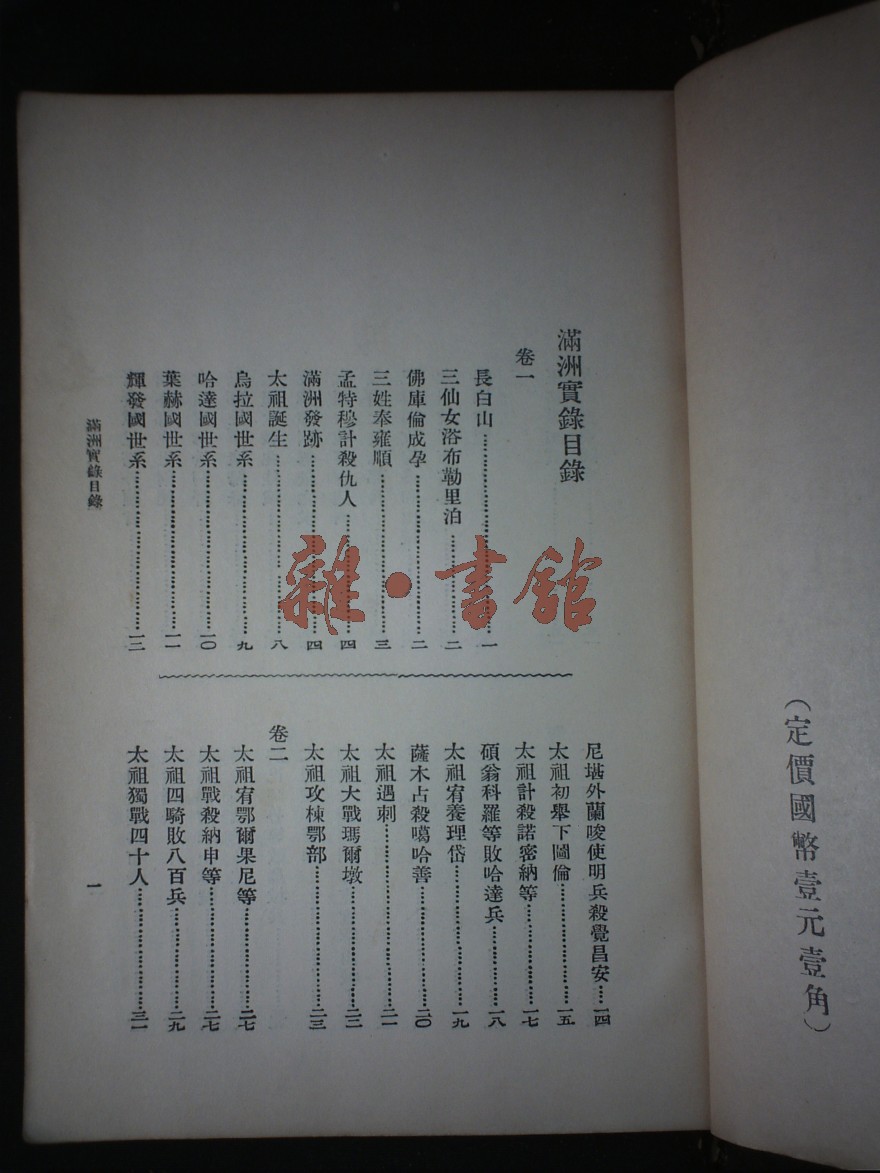 滿洲實錄目錄
卷一
長白山…………一
三仙女浴布勒里泊…………二
佛庫倫成孕…………二
三姓奉雍順…………三
孟特穆計殺仇人…………四
滿洲發跡…………四
太祖誕生…………八
烏拉國世系…………九
哈達國世系…………一〇
葉赫國世系…………一一
輝發國世系…………一三
尼堪外蘭唆使明兵殺覺昌安…一四
太祖初舉下圖倫…………一五
太祖計殺諾密納等…………一七
碩翁科羅等敗哈達兵…………一八
太祖宥養理岱…………一九
薩木占殺噶哈善…………二〇
太祖遇刺…………二一
太祖大戰瑪爾墩…………二二
太祖攻棟鄂部…………二三
卷二
太祖宥鄂爾果尼等…………二七
太祖戰殺納申等…………二七
太祖四騎敗八百兵…………二九
太祖獨戰四十人…………三一
滿洲實錄目錄
一
(定價國幣壹元壹角)
雜·書館